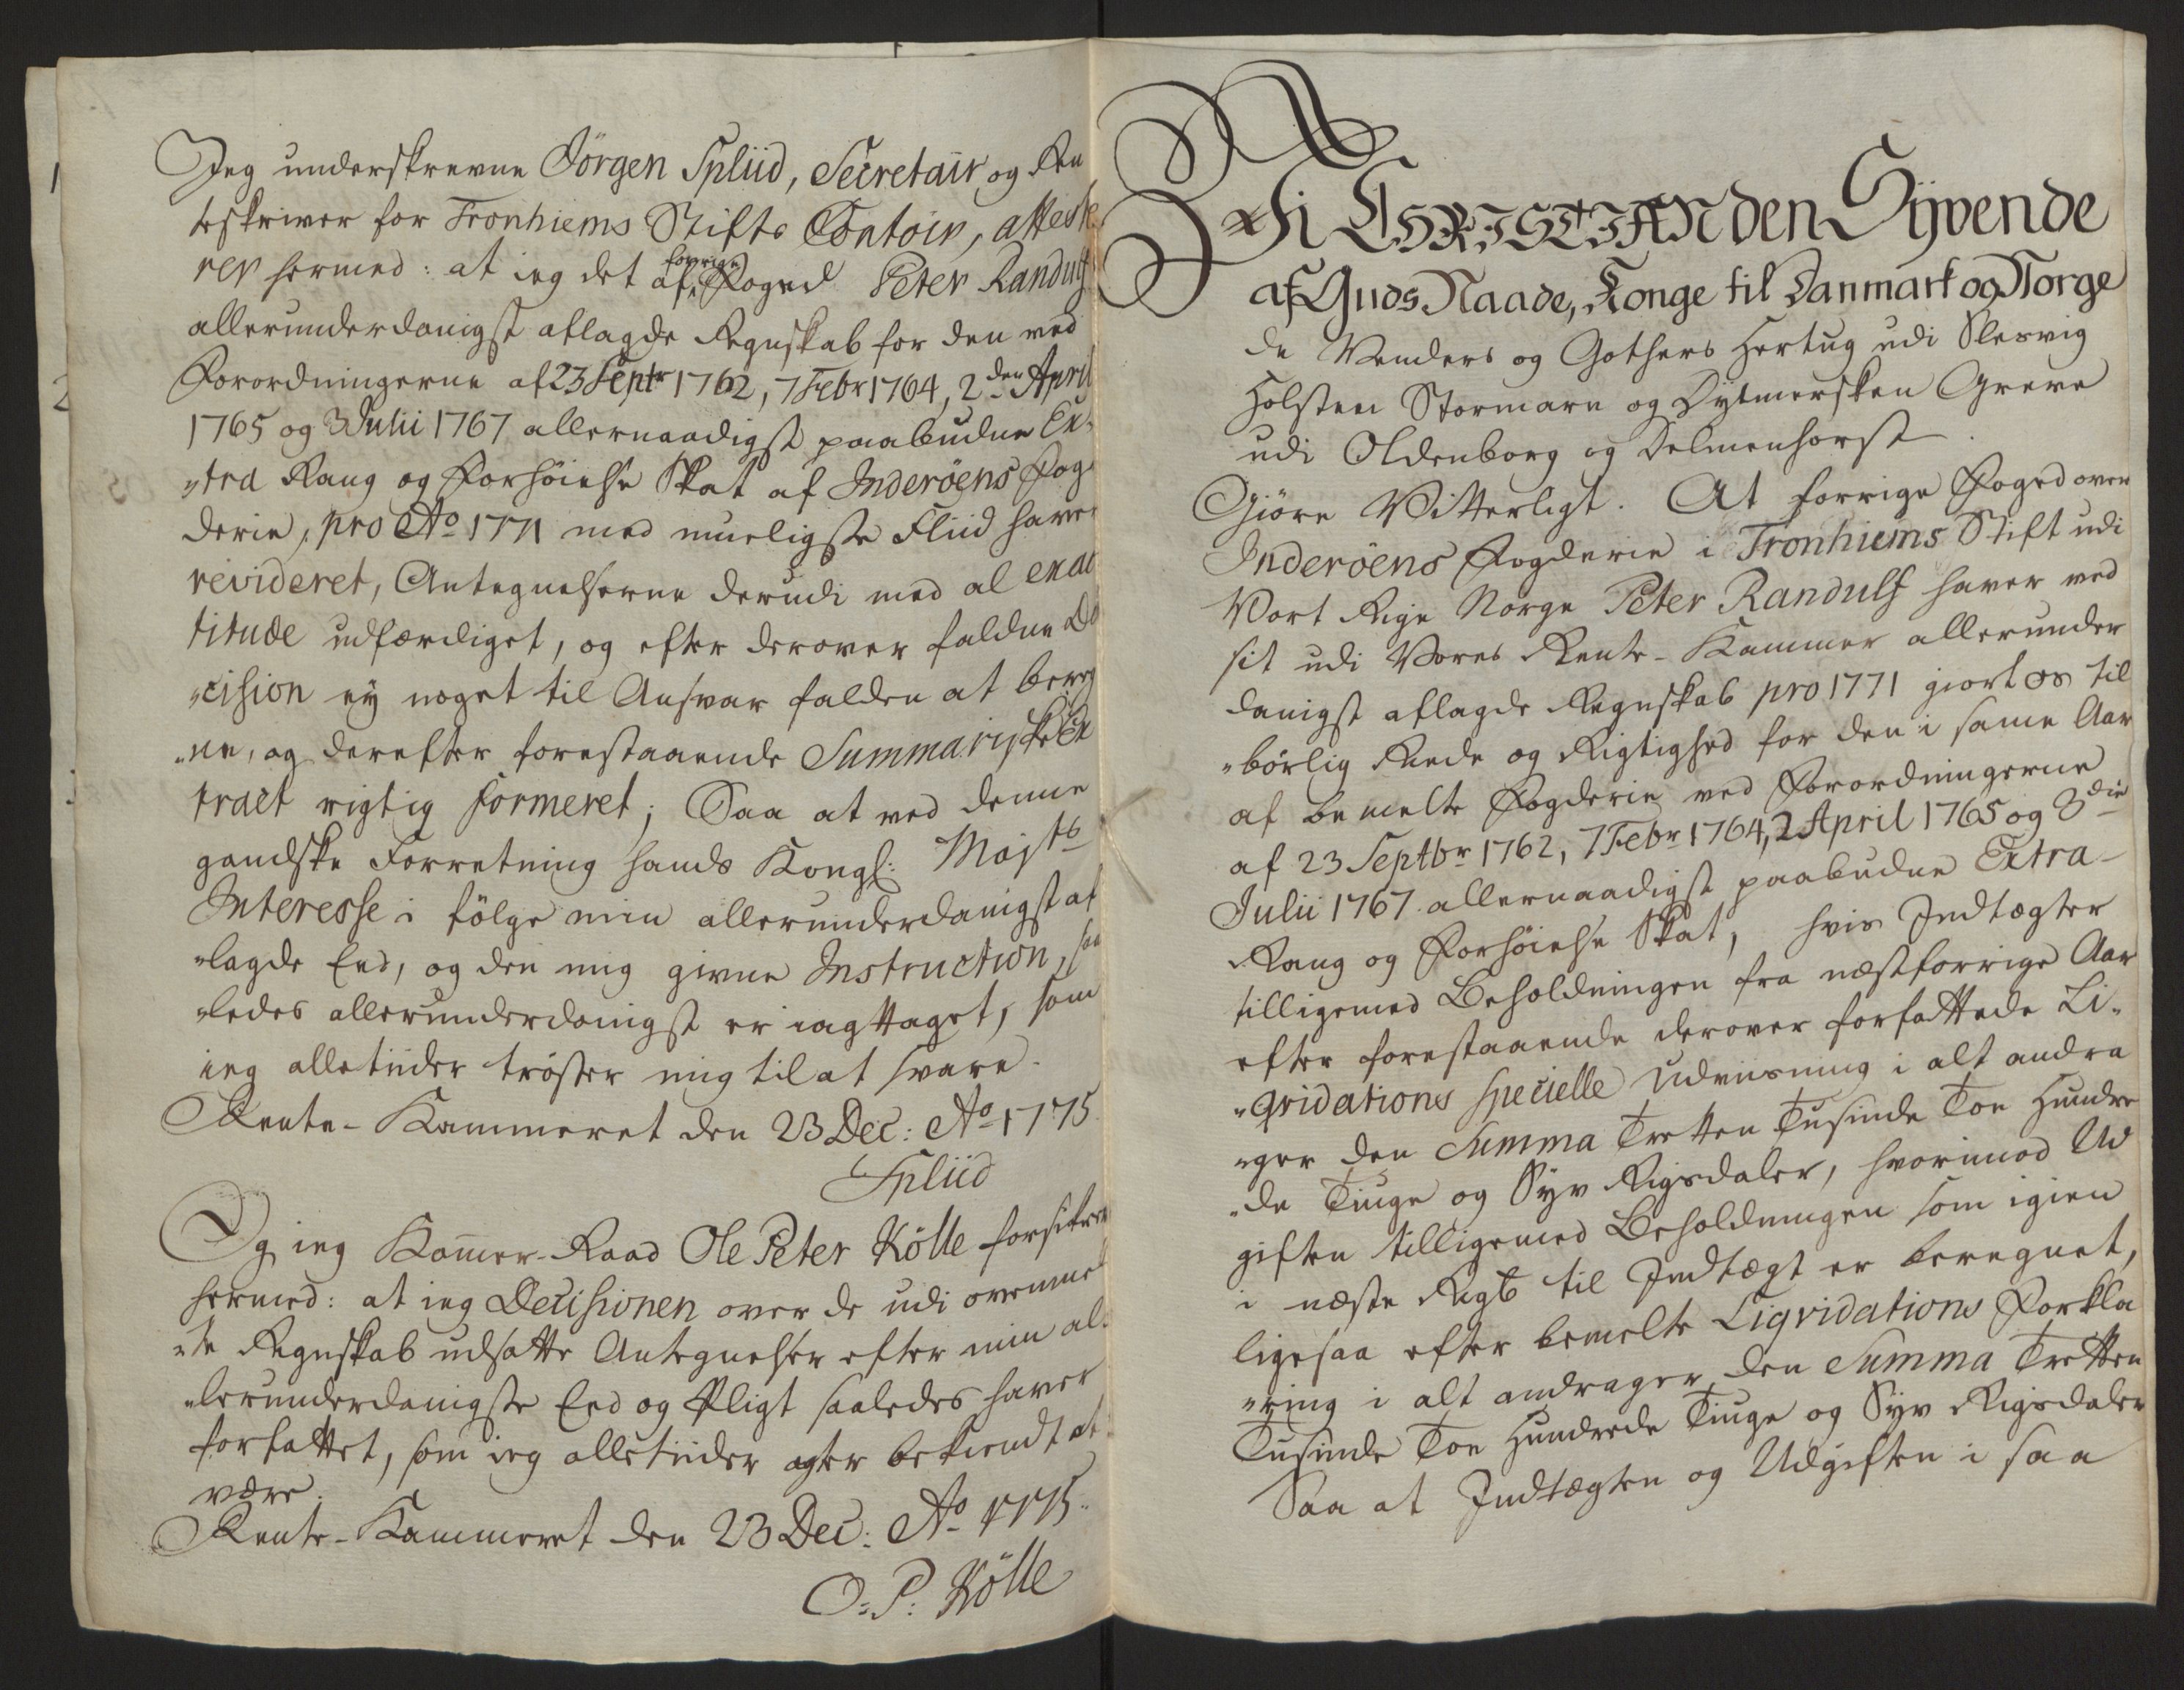 Jeg underskrevne Jörgen Spliid, Secretair og Ren
teskriver for Tronhiems Stifts Contoir, atteste
rer hermed: at ieg det af forrige Foged Peter Randulf
allerunderdanigst aflagde Regnskab for den ved
Forordningerne af 23 Septr 1762, 7 Febr 1764, 2den April
1765 og 3 Julii 1767 allernaadigst paabudne Ex„
„tra Rang og Forhöielse Skat af Inderöens Fog
derie, pro Ao 1771 med mueligste Fliid haver
revideret, Antegnelserne derudi med al exac
titude udfærdiget, og efter derover faldne De
„cision ey noget til Ansvar falden at bereg
„ne, og derefter forestaaende Summariske Ex
tract rigtig formeret; Saa at ved denne
gandske Forretning Hands Kongl: Mayts
Interesse i fölge min allerunderdanigst af
„lagde Eed, og den mig givne Instruction, saa
„ledes allerunderdanigst er iagttaget, som
ieg alletiider tröster mig til at svare.
Rente-Kammeret den 23 Dec: Ao 1775.
Spliid
Og ieg Kammer-Raad Ole Peter Kölle forsikrer
hermed: at ieg Decisionen over de udi ovenmel
„te Regnskab udsatte Antegnelser efter min al„
„lerunderdanigste Eed og Pligt saaledes haver
forfattet, som ieg alletiider agter bekiendt at
være.
Rente-Kammeret den 23 Dec: Ao 1775.
O: P: Kölle
Vi CHRISTIAN den Syvende
af Guds Naade, Konge til Danmark og Norge
de Venders og Gothers Hertug udi Slesvig
Holsten Stormarn og Dytmersken Greve
udi Oldenborg og Delmenhorst.
Giöre Vitterligt. At forrige Foged over
Inderöens Fogderie i Tronhiems Stift udi
Vort Rige Norge Peter Randulf haver ved
sit udi Vores Rente-Kammer allerunder
danigst aflagde Regnskab pro 1771 giort os til
„börlig Rede og Rigtighed for den i same Aar
af bemelte Fogderie ved Forordningerne
af 23 Septbr 1762, 7 Febr 1764, 2 April 1765 og 3die
Julii 1767 allernaadigst paabudne Extra-
Rang og Forhöielse Skat, hvis Indtægter
tilligemed Beholdningen fra næstforrige Aar
efter forestaaende derover forfattede Li„
„qvidations specielle Udviisning i alt andra
„ger den Summa Tretten Tusinde Toe Hundre
„de Tiuge og Syv Rigsdaler, hvorimod Ud
giften tilligemed Beholdningen som igien
i næste Regb til Indtægt er beregnet,
ligesaa efter bemelte Liqvidations Forkla
„ring i alt andrager den Summa Tretten
Tusinde Toe Hundrede Tiuge og Syv Rigsdaler
Saa at Indtægten og Udgiften i saa